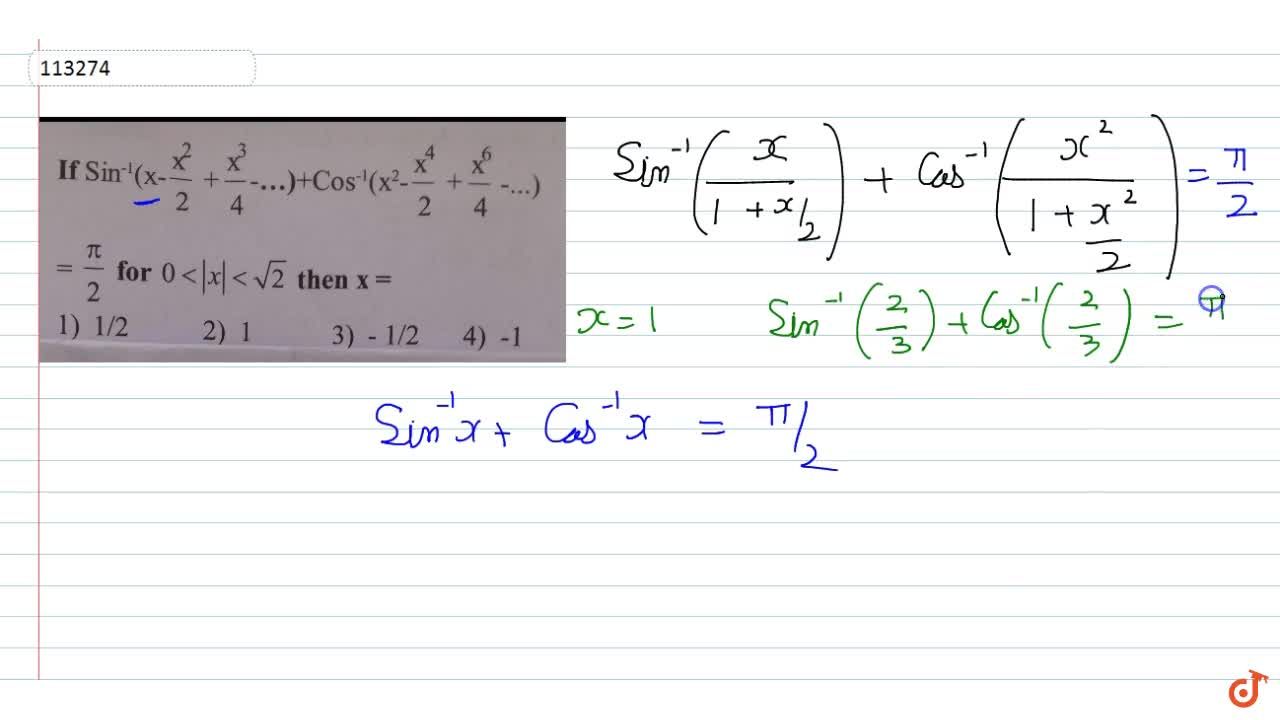 113274
If Sin⁻¹(x-x²/2+x³/4-...)+Cos⁻¹(x²-x⁴/2+x⁶/4-...)
= π/2 for 0<|x|<√2 then x =
1) 1/2 2) 1 3) - 1/2 4) -1
Sin⁻¹(x/(1+x/2)) + Cos⁻¹(x²/(1+x²/2)) = π/2
x=1 Sin⁻¹(2/3)+Cos⁻¹(2/3) = π
Sin⁻¹x+ Cos⁻¹x = π/2